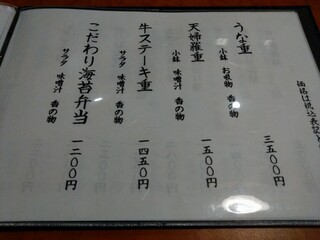 価格は税込表記
うな重
小鉢 お吸物 香の物
三五〇〇円
天婦羅重
小鉢 味噌汁 香の物
一五〇〇円
牛ステーキ重
サラダ 味噌汁 香の物
一四五〇円
こだわり海苔弁当
サラダ 味噌汁 香の物
一二〇〇円